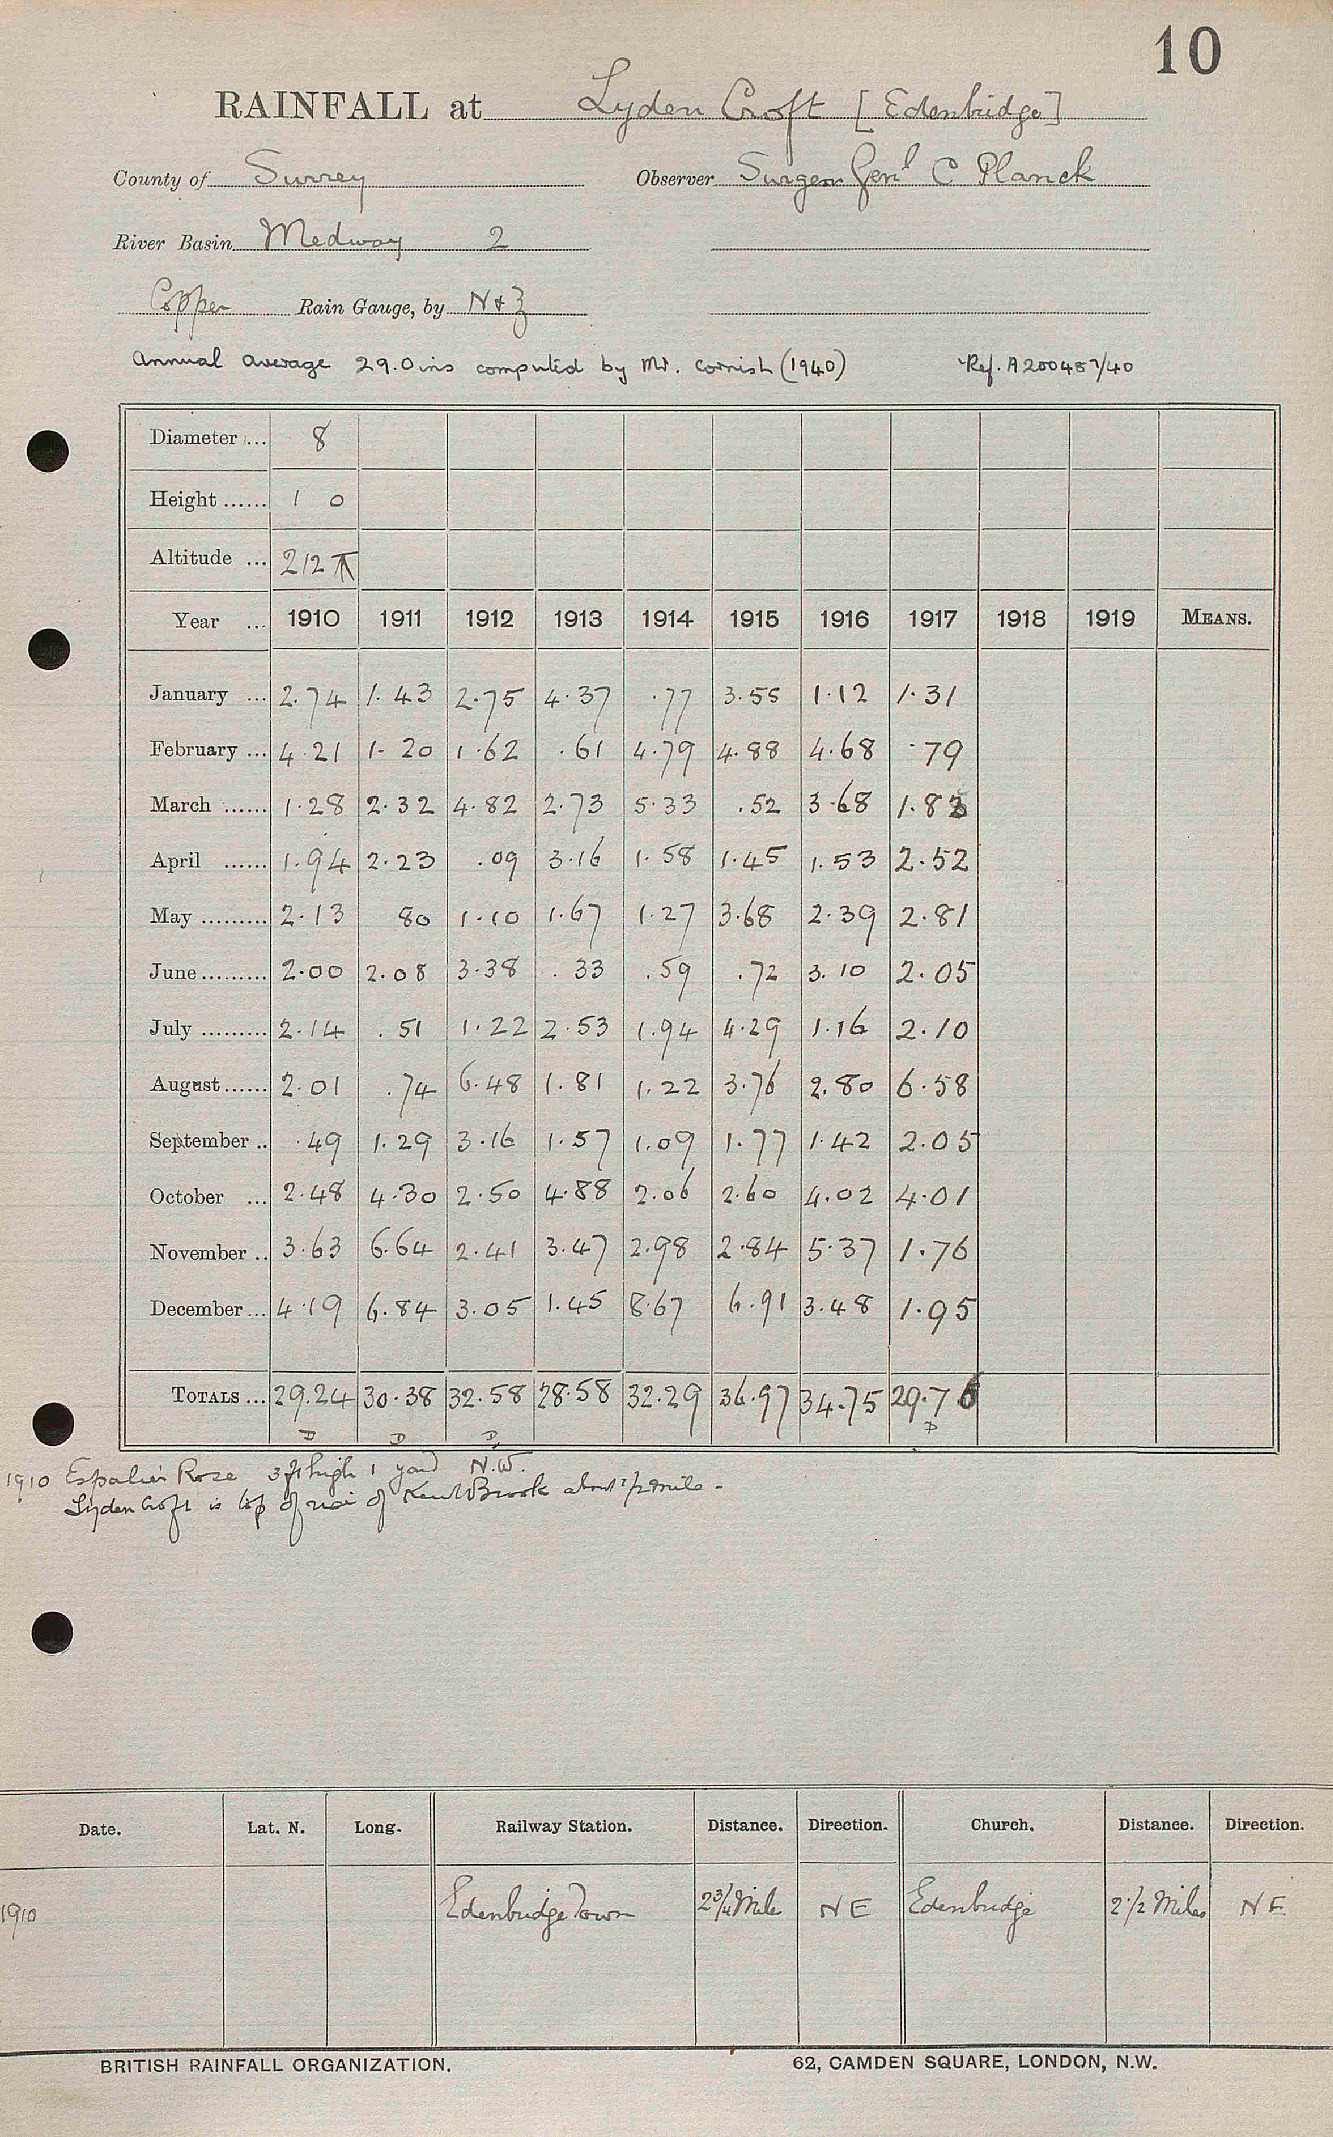 10
RAINFALL at Lyden Croft [Edenbridge]
County of Surrey Observer Surgeon Genl C Planck
River Basin Medway 2
Copper Rain Gauge, by N & Z
Annual average 29.0 ins computed by Mr. Cornish (1940) Ref. A200487/40
Diameter ... 8
Height ...... 1 0
Altitude ... 212
Year ... 1910 1911 1912 1913 1914 1915 1916 1917 1918 1919 MEANS.
January ... 2.74 1.43 2.75 4.37 .77 3.55 1.12 1.31
February ... 4.21 1.20 1.62 .61 4.79 4.88 4.68 .79
March ...... 1.28 2.32 4.82 2.73 5.33 .52 3.68 1.83
April ...... 1.94 2.23 .09 3.16 1.58 1.45 1.53 2.52
May ......... 2.13 80 1.10 1.67 1.27 3.68 2.39 2.81
June ......... 2.00 2.08 3.38 .33 .59 .72 3.10 2.05
July ......... 2.14 .51 1.22 2.53 1.94 4.29 1.16 2.10
August ...... 2.01 .74 6.48 1.81 1.22 3.76 2.80 6.58
September .. .49 1.29 3.16 1.57 1.09 1.77 1.42 2.05
October ... 2.48 4.30 2.50 4.88 2.06 2.60 4.02 4.01
November .. 3.63 6.64 2.41 3.47 2.98 2.84 5.37 1.76
December ... 4.19 6.84 3.05 1.45 8.67 6.91 3.48 1.95
TOTALS ... 29.24 30.38 32.58 28.58 32.29 36.97 34.75 29.76
D D D D
1910 Espalier Rose 3 ft high 1 yard N.W.
Lyden Croft is top of rise of Kent Brook about 1/2 mile.
Date. Lat. N. Long. Railway Station. Distance. Direction. Church. Distance. Direction.
1910 Edenbridge Town 2 3/4 Mile N E Edenbridge 2 1/2 Miles N E.
BRITISH RAINFALL ORGANIZATION. 62, CAMDEN SQUARE, LONDON, N.W.